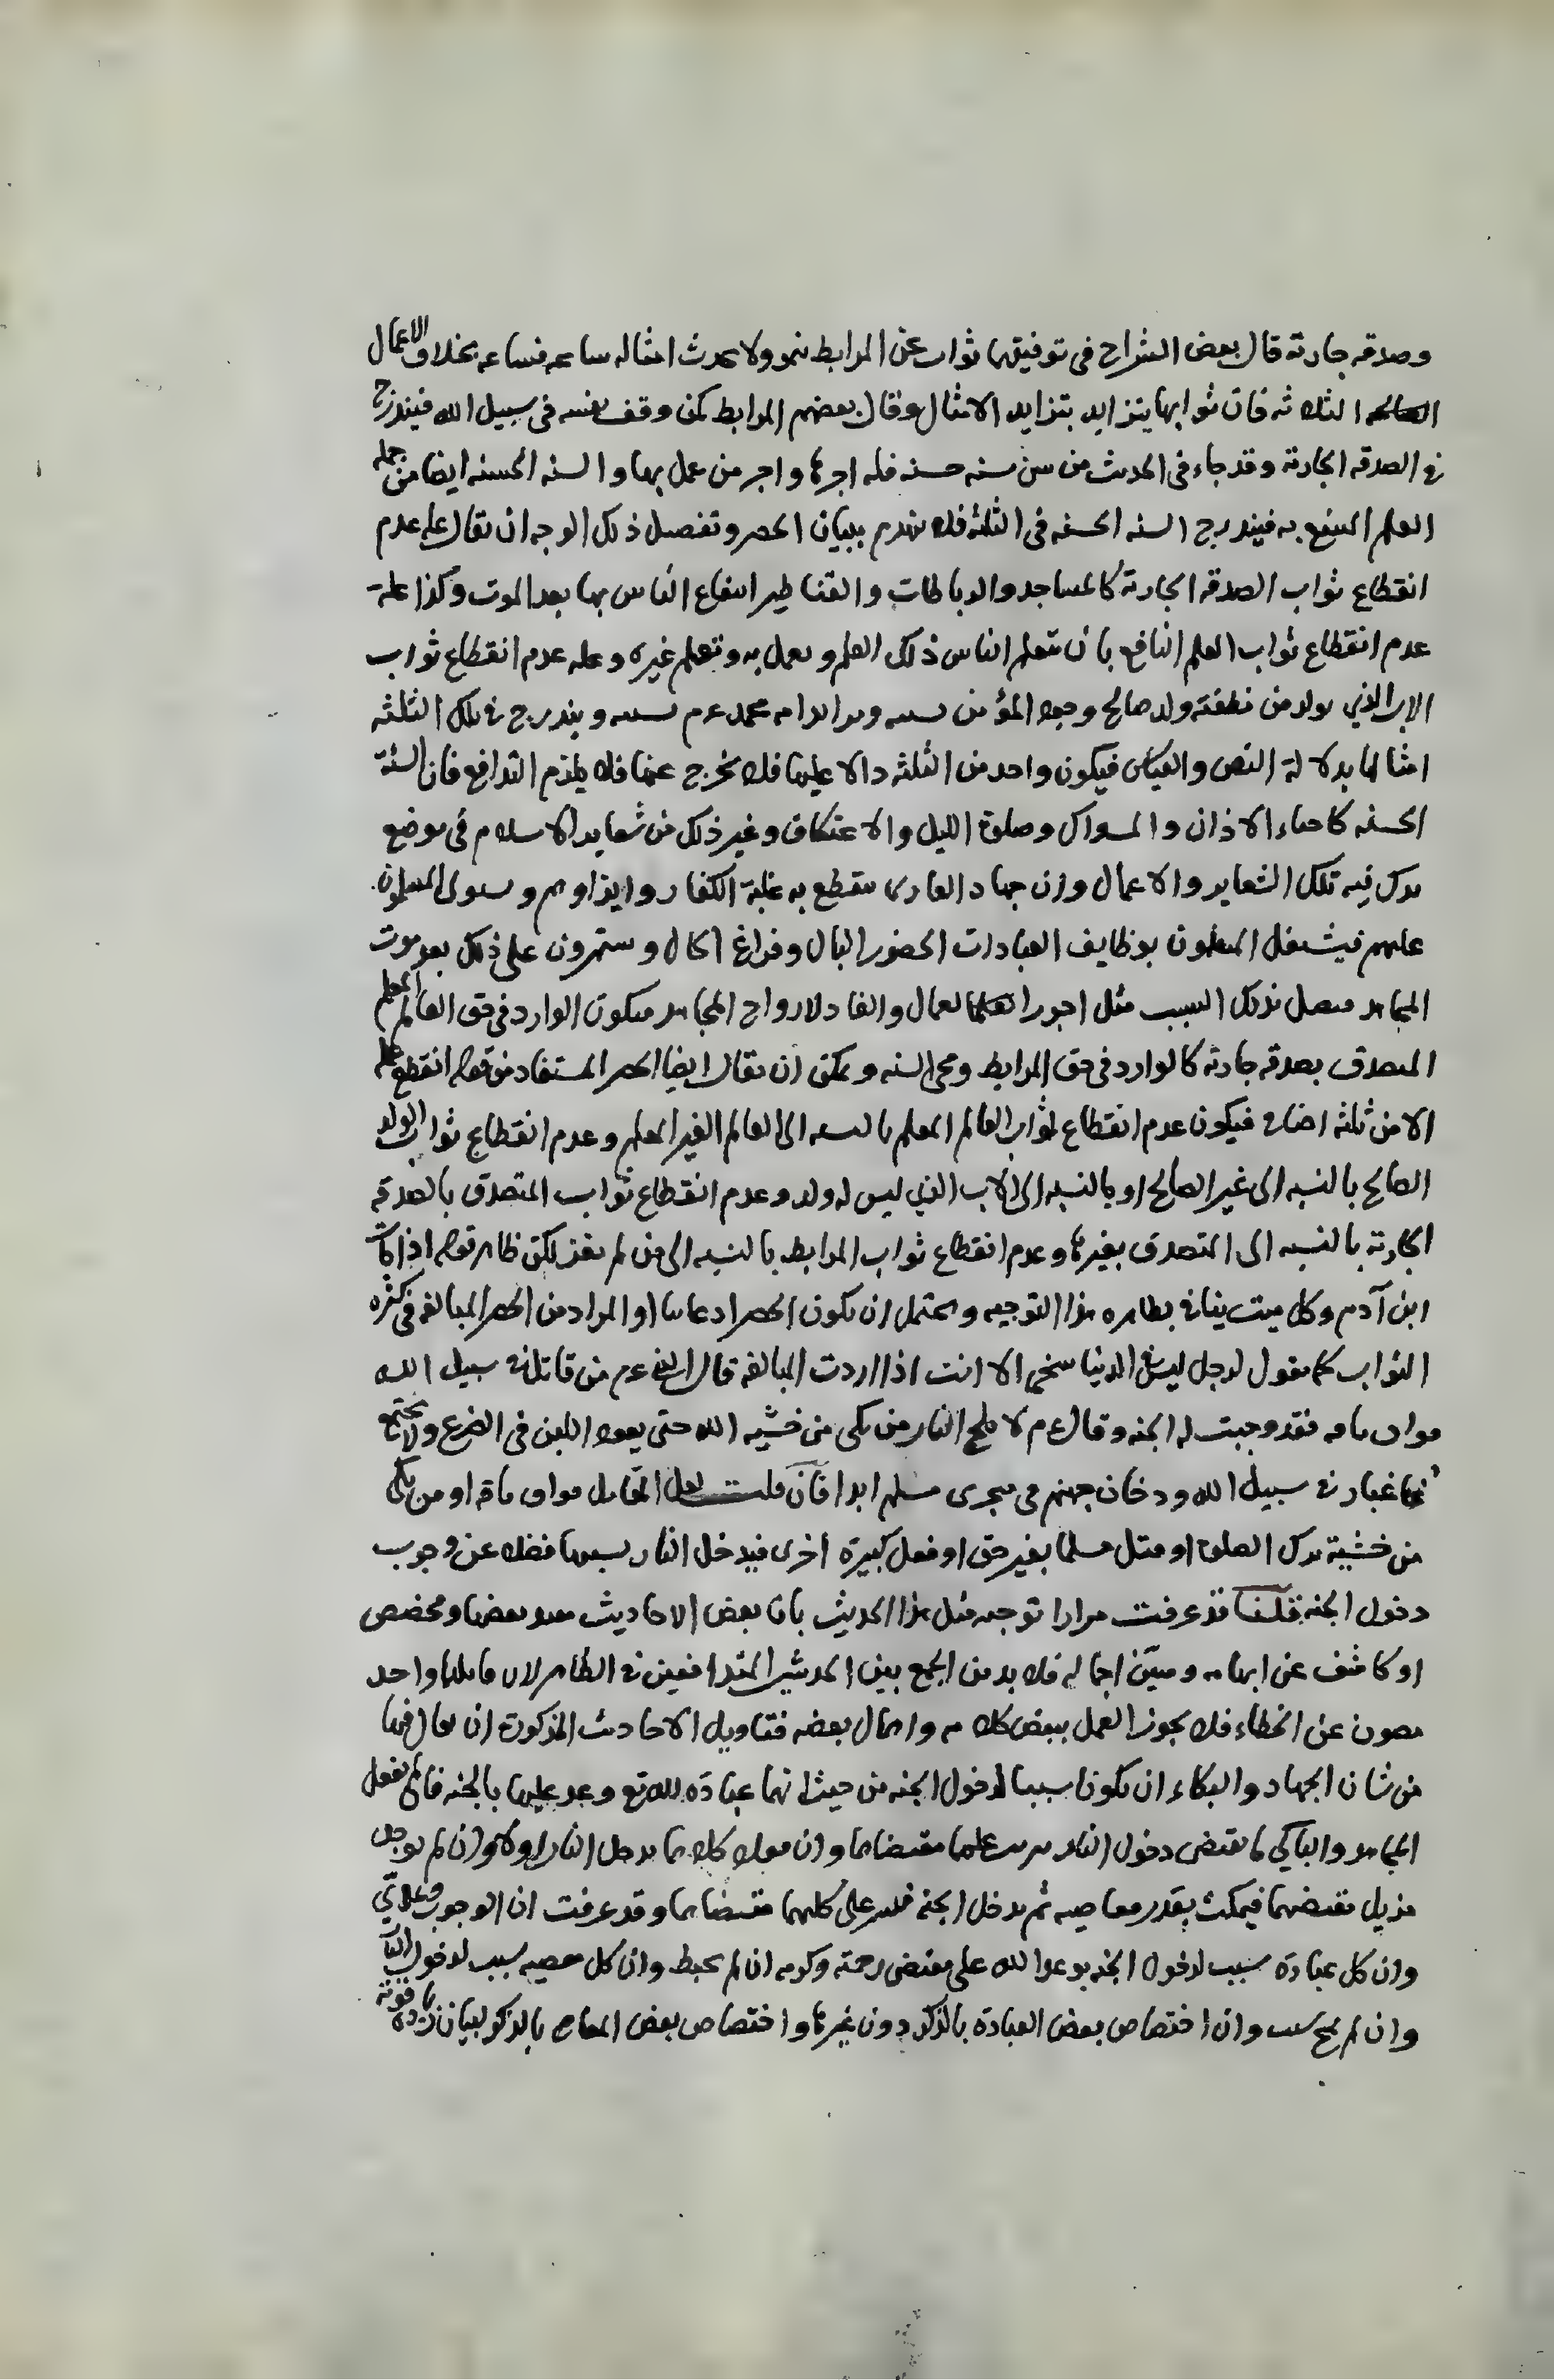 وصدقه جارية قال بعض الشراح فى توفيقهما ثواب عن المرابط ينمو ولا يحدث امثاله ساعه فساعه بخلاف الاعمال
الصالحه الثلاثه فان ثوابها يتزايد بتزايد الامثال وقال بعضهم المرابط كمن وقف نفسه فى سبيل الله فيندرج
فى الصدقه الجارية وقد جاء فى الحديث من سن سنه حسنه فله اجرها واجر من عمل بها والسنه الحسنه ايضا من جمله
العلم المنتفع به فيندرج السنه الحسنه فى الثلثه فلا ينهدم ببيان الحصر وتفصيل ذلك الوجه ان يقال عله عدم
انقطاع ثواب الصدقه الجارية كالمساجد والرباطات والقناطير انتفاع الناس بها بعد الموت وكذا علة
عدم انقطاع ثواب العلم النافع بان يتعلم الناس ذلك العلم ويعمل به ويتعلم غيره وعله عدم انقطاع ثواب
الاب الذي يولد من نطفته ولد صالح وجود المؤمن بسببه امه محمد عم بسببه ويندرج فى تلك الثلثه
امثالها بدلالة النص والقياس فيكون واحد من الثلثه دالا عليها فلا يخرج عنها فلا يلزم التدافع فان السنة
الحسنه كاحياء الاذان والسواك وصلوة الليل والاعتكاف وغير ذلك من شعاير الاسلام فى موضع
ترك فيه تلك الشعاير والاعمال وان جهاد الغازى ينقطع به غلبة الكفار وايذاوهم ويستولى المسلمون
عليهم فيشتغل المسلمون بوظايف العبادات الحضور البال وفراغ الحال ويستمرون على ذلك بعد موت
المجاهد فيصل بذلك السبب مثل اجور العمال والعباد لارواح المجاهد فيكون الوارد فى حق العالم المعلم
المتصدق بصدقه جارية كالوارد فى حق المرابط ومحى السنه ويمكن ان يقال ايضا الحصر المستفاد من قوله انقطع عمله
الا من ثلثه اضافى فيكون عدم انقطاع ثواب العالم المعلم بالنسبه الى العالم الغير المعلم وعدم انقطاع ثواب الولد
الصالح بالنسبه الى غير الصالح او بالنسبه الى الاب الذي ليس له ولد وعدم انقطاع ثواب المتصدق بالصدقه
الجارية بالنسبه الى المتصدق بغيرها وعدم انقطاع ثواب المرابط بالنسبه الى من لم يغز لكن ظاهر قوله اذا مات
ابن آدم وكل ميت ينافى بظاهره هذا التوجيه ويحتمل ان يكون الحصر ادعائيا او المراد من الحصر المبالغه فى كثره
الثواب كما تقول لرجل ليس فى الدنيا سخى الا انت اذا اردت المبالغه قال النبى عم من قاتل فى سبيل الله
فواق ناقه فقد وجبت له الجنه وقال عم لا يلج النار من بكى من خشيه الله حتى يعود اللبن فى الضرع ولا يجتمع
غبار فى سبيل الله ودخان جهنم فى منخرى مسلم ابدا فان قلت لعل المقاتل فواق ناقه او من بكى
من خشية ترك الصلوة او قتل مسلما بغير حق او فعل كبيرة اخرى فيدخل النار بسببها فضلا عن وجوب
دخول الجنه قلنا قد عرفت مرارا توجيه مثل هذا الحديث بان بعض الاحاديث مقيد بعضها ومخصص
او كاشف عن ابهامه ومبين اجماله فلا بد من الجمع بين الحديثين المتدافعين فى الظاهر لان قائلها واحد
مصون عن الخطاء فلا يجوز العمل ببعض كلامه واهمال بعضه فتاويل الاحاديث المذكورة ان يقال فيها
من شان الجهاد والبكاء ان يكونا سببا لدخول الجنه من حيث انهما عبادة لله تع وعد عليهما بالجنه فان لم يفعل
المجاهد والباكي ما يقتضى دخول النار يترتب عليهما مقتضاهما وان فعلا كلاهما يدخل النار اولا وان لم يوجد
مزيل مقتضيهما فيمكث بقدر معاصيه ثم يدخل الجنه فيترتب على كليهما مقتضاهما وقد عرفت ان الوجوب وعدى
وان كل عبادة سبب لدخول الجنه بوعد الله على مقتضى رحمته وكرمه ان لم يحبط وان كل معصيه سبب لدخول النار
وان لم يمح بسبب وان اختصاص بعض العبادة بالذكر دون غيرها واختصاص بعض المعاصى بالذكر لبيان زيادة قوته